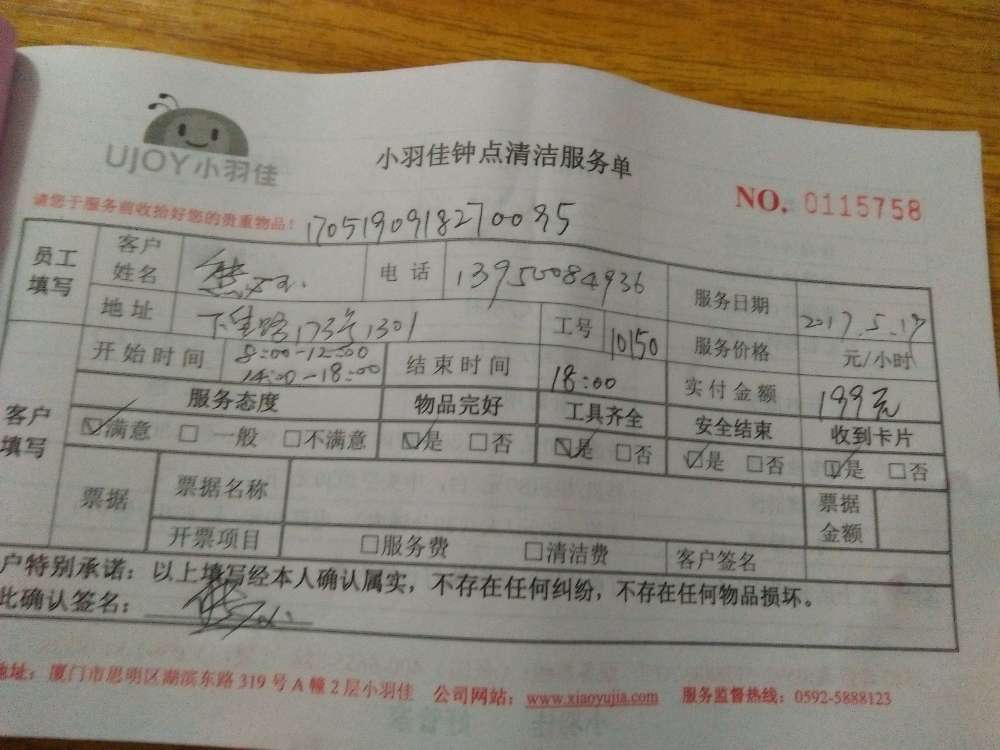 UJOY小羽佳
小羽佳钟点清洁服务单
NO. 0115758
请您于服务前收拾好您的贵重物品！
1705190918270085
员工填写 客户姓名 熊 电话 13950084936 服务日期 2017.5.19
地址 路173号1301 工号 10150 服务价格 元/小时
开始时间 8:00-12:00 14:00-18:00 结束时间 18:00 实付金额 199元
客户填写 服务态度 物品完好 工具齐全 安全结束 收到卡片
☑满意 □一般 □不满意 ☑是 □否 ☑是 □否 ☑是 □否 ☑是 □否
票据 票据名称 票据金额
开票项目 □服务费 □清洁费 客户签名
户特别承诺：以上填写经本人确认属实，不存在任何纠纷，不存在任何物品损坏。
此确认签名：
地址：厦门市思明区湖滨东路319号A幢2层小羽佳 公司网站：www.xiaoyujia.com 服务监督热线：0592-5888123